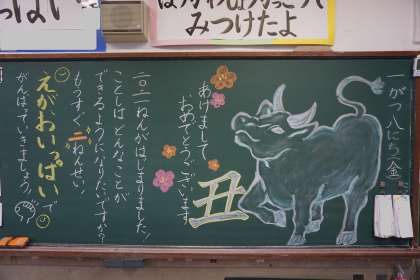 っぱい
みつけたよ
一がつ八にち(金)
あけまして
おめでとうございます。
丑
二〇二一ねんがはじまりました!
ことしはどんなことが
できるようになりたいですか?
もうすぐ二ねんせい。
えがおいっぱいで
がんばっていきましょう。